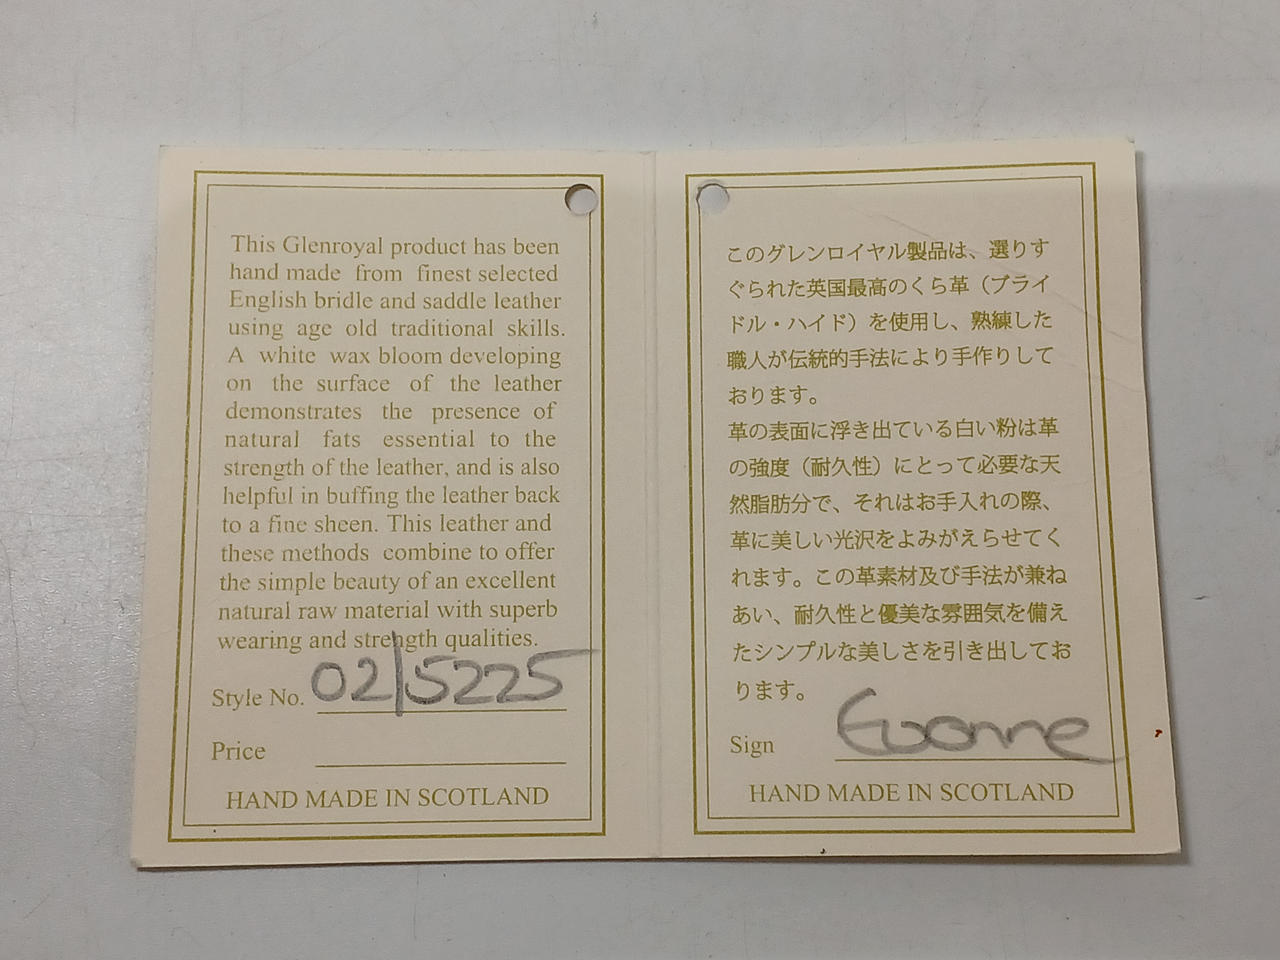 This Glenroyal product has been
hand made from finest selected
English bridle and saddle leather
using age old traditional skills.
A white wax bloom developing
on the surface of the leather
demonstrates the presence of
natural fats essential to the
strength of the leather, and is also
helpful in buffing the leather back
to a fine sheen. This leather and
these methods combine to offer
the simple beauty of an excellent
natural raw material with superb
wearing and strength qualities.
Style No. 02/5225
Price
HAND MADE IN SCOTLAND
このグレンロイヤル製品は、選りす
ぐられた英国最高のくら革（ブライ
ドル・ハイド）を使用し、熟練した
職人が伝統的手法により手作りして
おります。
革の表面に浮き出ている白い粉は革
の強度（耐久性）にとって必要な天
然脂肪分で、それはお手入れの際、
革に美しい光沢をよみがえらせてく
れます。この革素材及び手法が兼ね
あい、耐久性と優美な雰囲気を備え
たシンプルな美しさを引き出してお
ります。
Sign Evonne
HAND MADE IN SCOTLAND